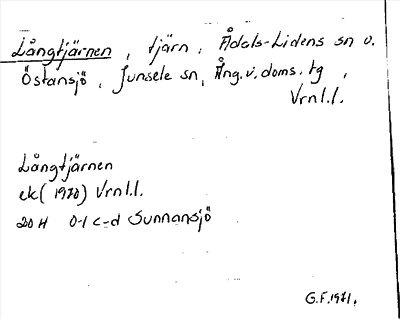 Långtjärnen, tjärn, Ådals-Lidens sn o.
Östansjö, Junsele sn, Ång.v.doms.tg,
Vrnl.l.
Långtjärnen
ek (1970) Vrnl.l.
20H 0-1 c-d Sunnansjö
G.F.1971.